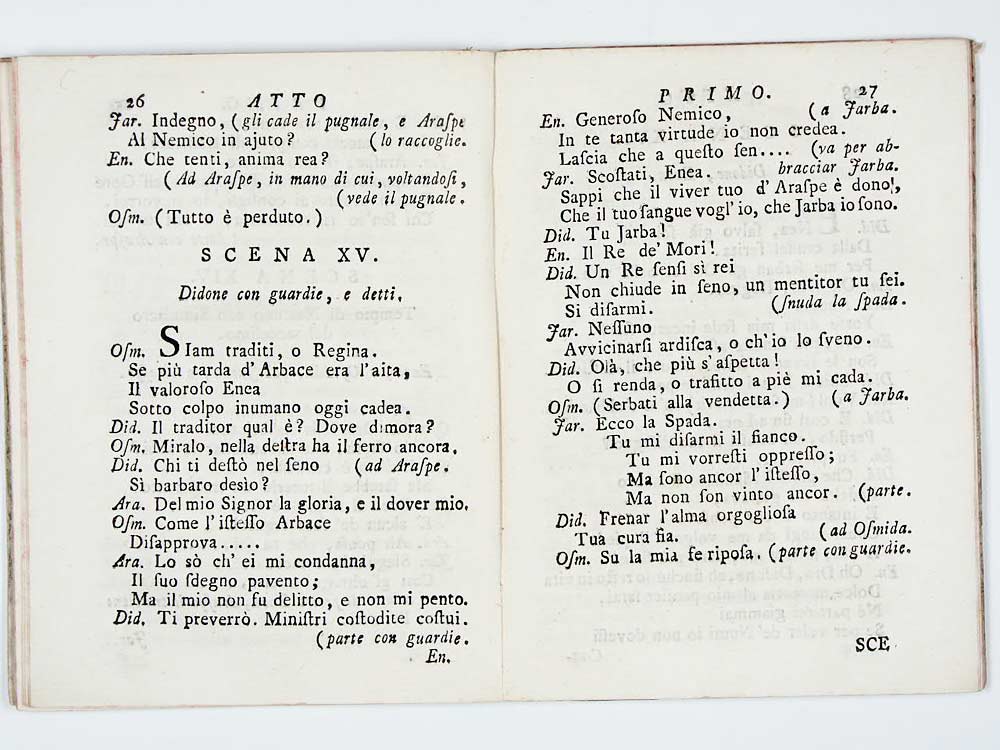 26 ATTO
Jar. Indegno, (gli cade il pugnale, e Araſpe
Al Nemico in ajuto? (lo raccoglie.
En. Che tenti, anima rea?
(Ad Araſpe, in mano di cui, voltandoſi,
(vede il pugnale.
Oſm. (Tutto è perduto.)
SCENA XV.
Didone con guardie, e detti.
Oſm. SIam traditi, o Regina.
Se più tarda d'Arbace era l'aita,
Il valoroſo Enea
Sotto colpo inumano oggi cadea.
Did. Il traditor qual è? Dove dimora?
Oſm. Miralo, nella deſtra ha il ferro ancora.
Did. Chi ti deſtò nel ſeno (ad Araſpe.
Sì barbaro desìo?
Ara. Del mio Signor la gloria, e il dover mio.
Oſm. Come l'iſteſſo Arbace
Diſapprova.....
Ara. Lo sò ch'ei mi condanna,
Il ſuo ſdegno pavento;
Ma il mio non fu delitto, e non mi pento.
Did. Ti preverrò. Miniſtri coſtodite coſtui.
(parte con guardie.
En.
PRIMO. 27
En. Generoſo Nemico, (a Jarba.
In te tanta virtude io non credea.
Laſcia che a queſto ſen.... (va per ab-
Jar. Scoſtati, Enea. bracciar Jarba.
Sappi che il viver tuo d'Araſpe è dono!,
Che il tuo ſangue vogl'io, che Jarba io ſono.
Did. Tu Jarba!
En. Il Re de' Mori!
Did. Un Re ſenſi sì rei
Non chiude in ſeno, un mentitor tu ſei.
Si diſarmi. (ſnuda la ſpada.
Jar. Neſſuno
Avvicinarſi ardiſca, o ch'io lo ſveno.
Did. Olà, che più s'aſpetta!
O ſi renda, o trafitto a piè mi cada.
Oſm. (Serbati alla vendetta.) (a Jarba.
Jar. Ecco la Spada.
Tu mi diſarmi il fianco.
Tu mi vorreſti oppreſſo;
Ma ſono ancor l'iſteſſo,
Ma non ſon vinto ancor. (parte.
Did. Frenar l'alma orgoglioſa
Tua cura ſia. (ad Oſmida.
Oſm. Su la mia fe ripoſa. (parte con guardie.
SCE